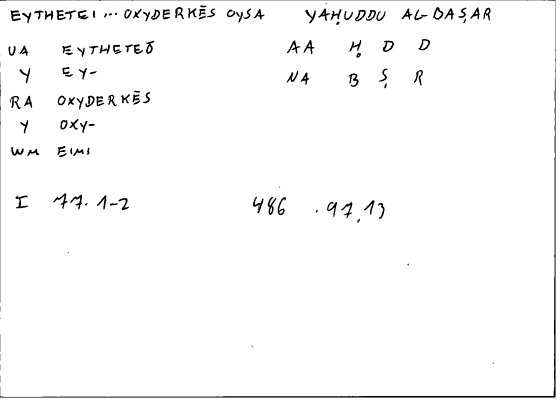 EYTHETEI ... OXYDERKĒS OYSA YAḤUDDU AL-BAṢAR
VA EYTHETEŌ AA Ḥ D D
Y EY- NA B Ṣ R
RA OXYDERKĒS
Y OXY-
WM EIMI
I 77. 1-2 486 .97,13